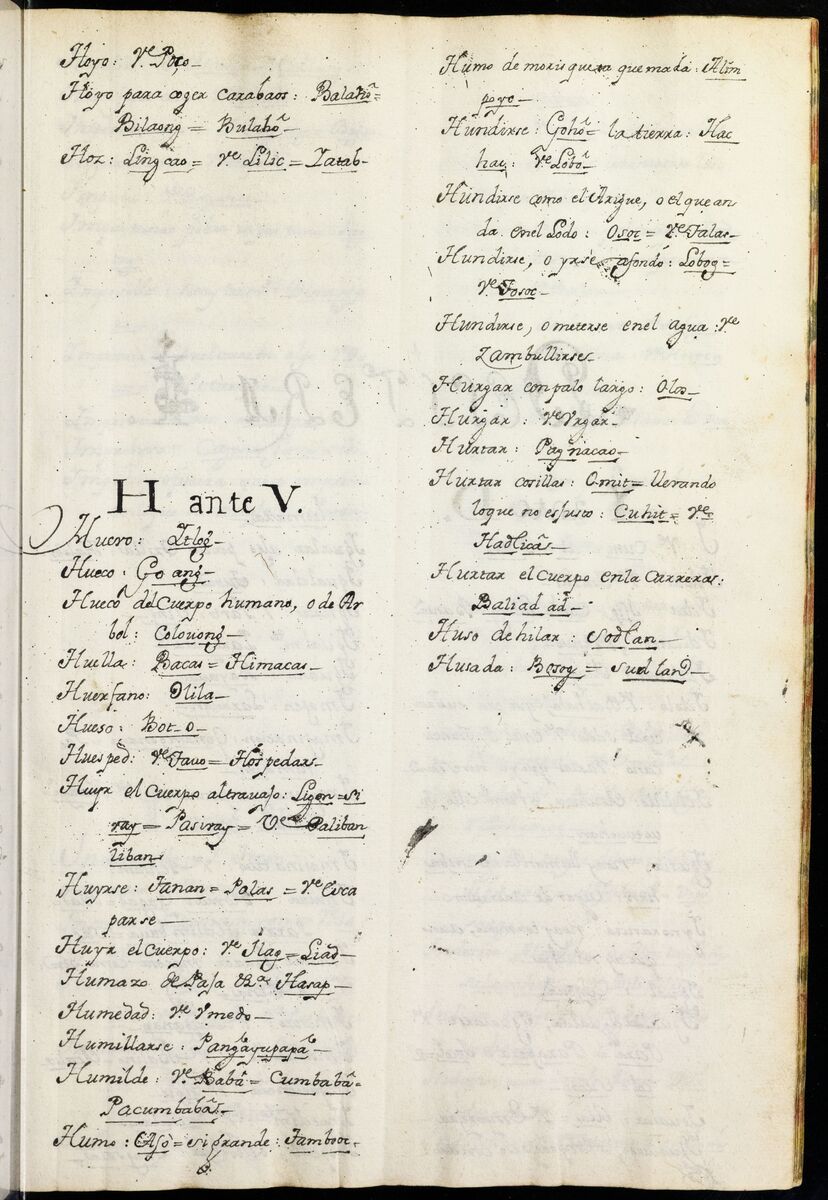 Hoyo: Vᵉ Poço_
Hoyo para coger carabaos: Balahô=
Bilaong = Bulahô_
Hoz: Lingcao= Vᵉ Lilic= Zatab_
H ante V.
Huevo: Itlog_
Hueco: Go ang_
Hueco del Cuerpo humano, o de Ar
bol: Colouong_
Huella: Bacas= Himacas_
Huerfano: Olila_
Hueso: Bot_o_
Huesped: Vᵉ Tauo= Hospedar_
Huyr el Cuerpo altrauajo: Ligon=si
ray= Pasiray= Vᵉ Paliban
liban_
Huyrse: Tanan= Polas = Vᵉ Esca
parse_
Huyr el cuerpo: Vᵉ Ilag= Liad_
Humazo de Paja &ª Hasap_
Humedad: Vᵉ Vmedo_
Humillarse: Pangayupapâ_
Humilde: Vᵉ Babâ= Cumbabâ=
Pacumbabâ_
Humo: Asô= si grande: Tambooc_
Humo de morisqueta quemada: Alim
poyo_
Hundirse: Gohô= la tierra: Hac
hac: Vᵉ Lobô_
Hundirse como el Arigue, o el que an
da enel Lodo: Osoc= Vᵉ Talas_
Hundirse, o yrse afondo: Lobog=
Vᵉ Tosoc_
Hundirse, o meterse enel agua: Vᵉ
Zambullirse_
Hurgar con palo largo: Olos_
Hurgar: Vᵉ Vrgar_
Hurtar: Pagnacao_
Hurtar cosillas: Omit= lleuando
loque no es justo: Cuhit= Vᵉ
Hadlicâ_
Hurtar el Cuerpo enla Carreras:
Baliad ad_
Huso de hilar: Sodlan_
Husada: Bosog= Sudlan_